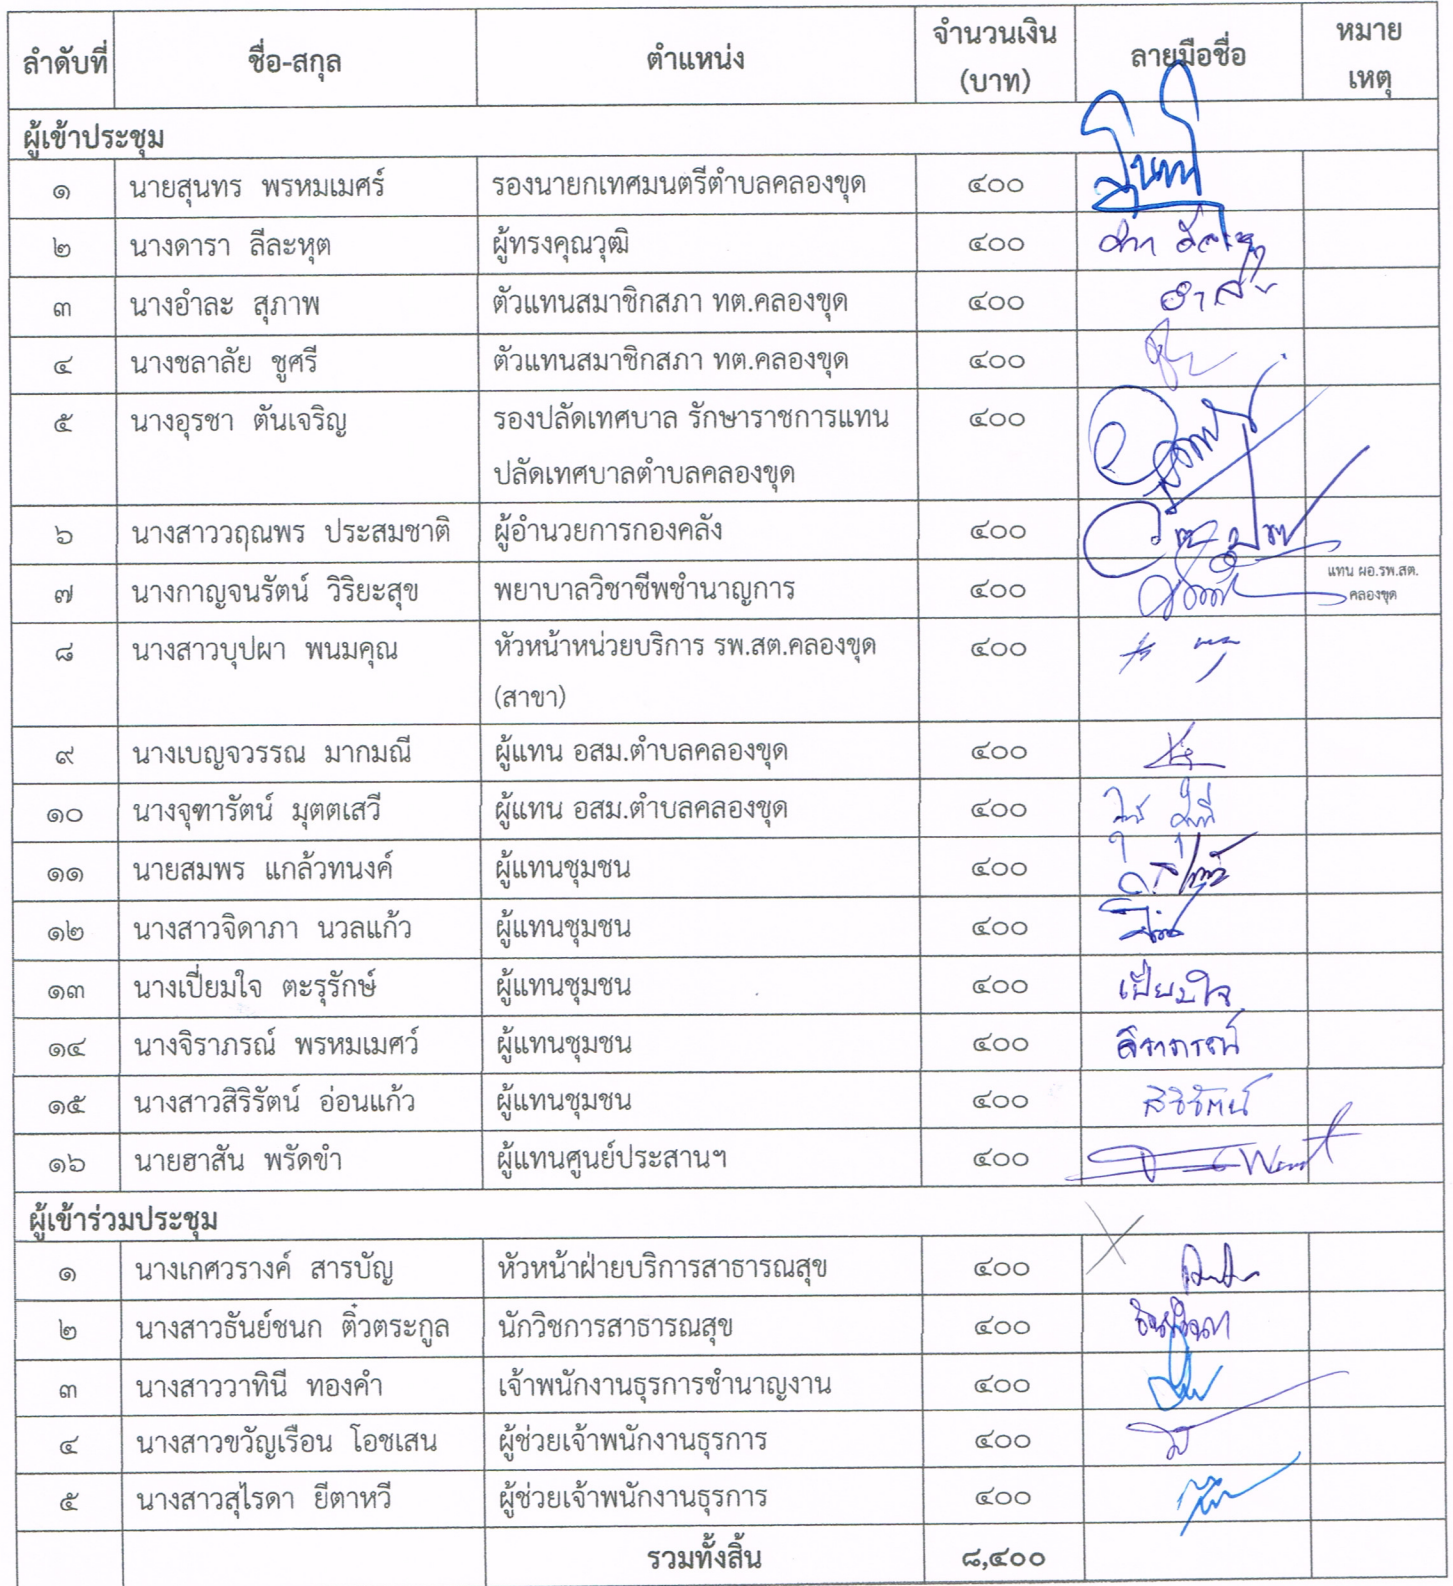 ลำดับที่ ชื่อ-สกุล ตำแหน่ง จำนวนเงิน (บาท) ลายมือชื่อ หมายเหตุ
ผู้เข้าประชุม
๑ นายสุนทร พรหมเมศร์ รองนายกเทศมนตรีตำบลคลองขุด ๔๐๐
๒ นางดารา ลีละหุต ผู้ทรงคุณวุฒิ ๔๐๐
๓ นางอำละ สุภาพ ตัวแทนสมาชิกสภา ทต.คลองขุด ๔๐๐
๔ นางชลาลัย ชูศรี ตัวแทนสมาชิกสภา ทต.คลองขุด ๔๐๐
๕ นางอุรชา ตันเจริญ รองปลัดเทศบาล รักษาราชการแทน ๔๐๐
ปลัดเทศบาลตำบลคลองขุด
๖ นางสาววฤณพร ประสมชาติ ผู้อำนวยการกองคลัง ๔๐๐
๗ นางกาญจนรัตน์ วิริยะสุข พยาบาลวิชาชีพชำนาญการ ๔๐๐ แทน ผอ.รพ.สต.
คลองขุด
๘ นางสาวบุปผา พนมคุณ หัวหน้าหน่วยบริการ รพ.สต.คลองขุด ๔๐๐
(สาขา)
๙ นางเบญจวรรณ มากมณี ผู้แทน อสม.ตำบลคลองขุด ๔๐๐
๑๐ นางจุฑารัตน์ มุตตเสวี ผู้แทน อสม.ตำบลคลองขุด ๔๐๐
๑๑ นายสมพร แกล้วทนงค์ ผู้แทนชุมชน ๔๐๐
๑๒ นางสาวจิดาภา นวลแก้ว ผู้แทนชุมชน ๔๐๐
๑๓ นางเปี่ยมใจ ตะรุรักษ์ ผู้แทนชุมชน ๔๐๐ เปี่ยมใจ
๑๔ นางจิราภรณ์ พรหมเมศว์ ผู้แทนชุมชน ๔๐๐ จิราภรณ์
๑๕ นางสาวสิริรัตน์ อ่อนแก้ว ผู้แทนชุมชน ๔๐๐ สิริรัตน์
๑๖ นายฮาสัน พรัดขำ ผู้แทนศูนย์ประสานฯ ๔๐๐
ผู้เข้าร่วมประชุม
๑ นางเกศวรางค์ สารบัญ หัวหน้าฝ่ายบริการสาธารณสุข ๔๐๐
๒ นางสาวธันย์ชนก ติ๋วตระกูล นักวิชการสาธารณสุข ๔๐๐
๓ นางสาววาทินี ทองคำ เจ้าพนักงานธุรการชำนาญงาน ๔๐๐
๔ นางสาวขวัญเรือน โอชเสน ผู้ช่วยเจ้าพนักงานธุรการ ๔๐๐
๕ นางสาวสุไรดา ยีตาหวี ผู้ช่วยเจ้าพนักงานธุรการ ๔๐๐
รวมทั้งสิ้น ๘,๔๐๐